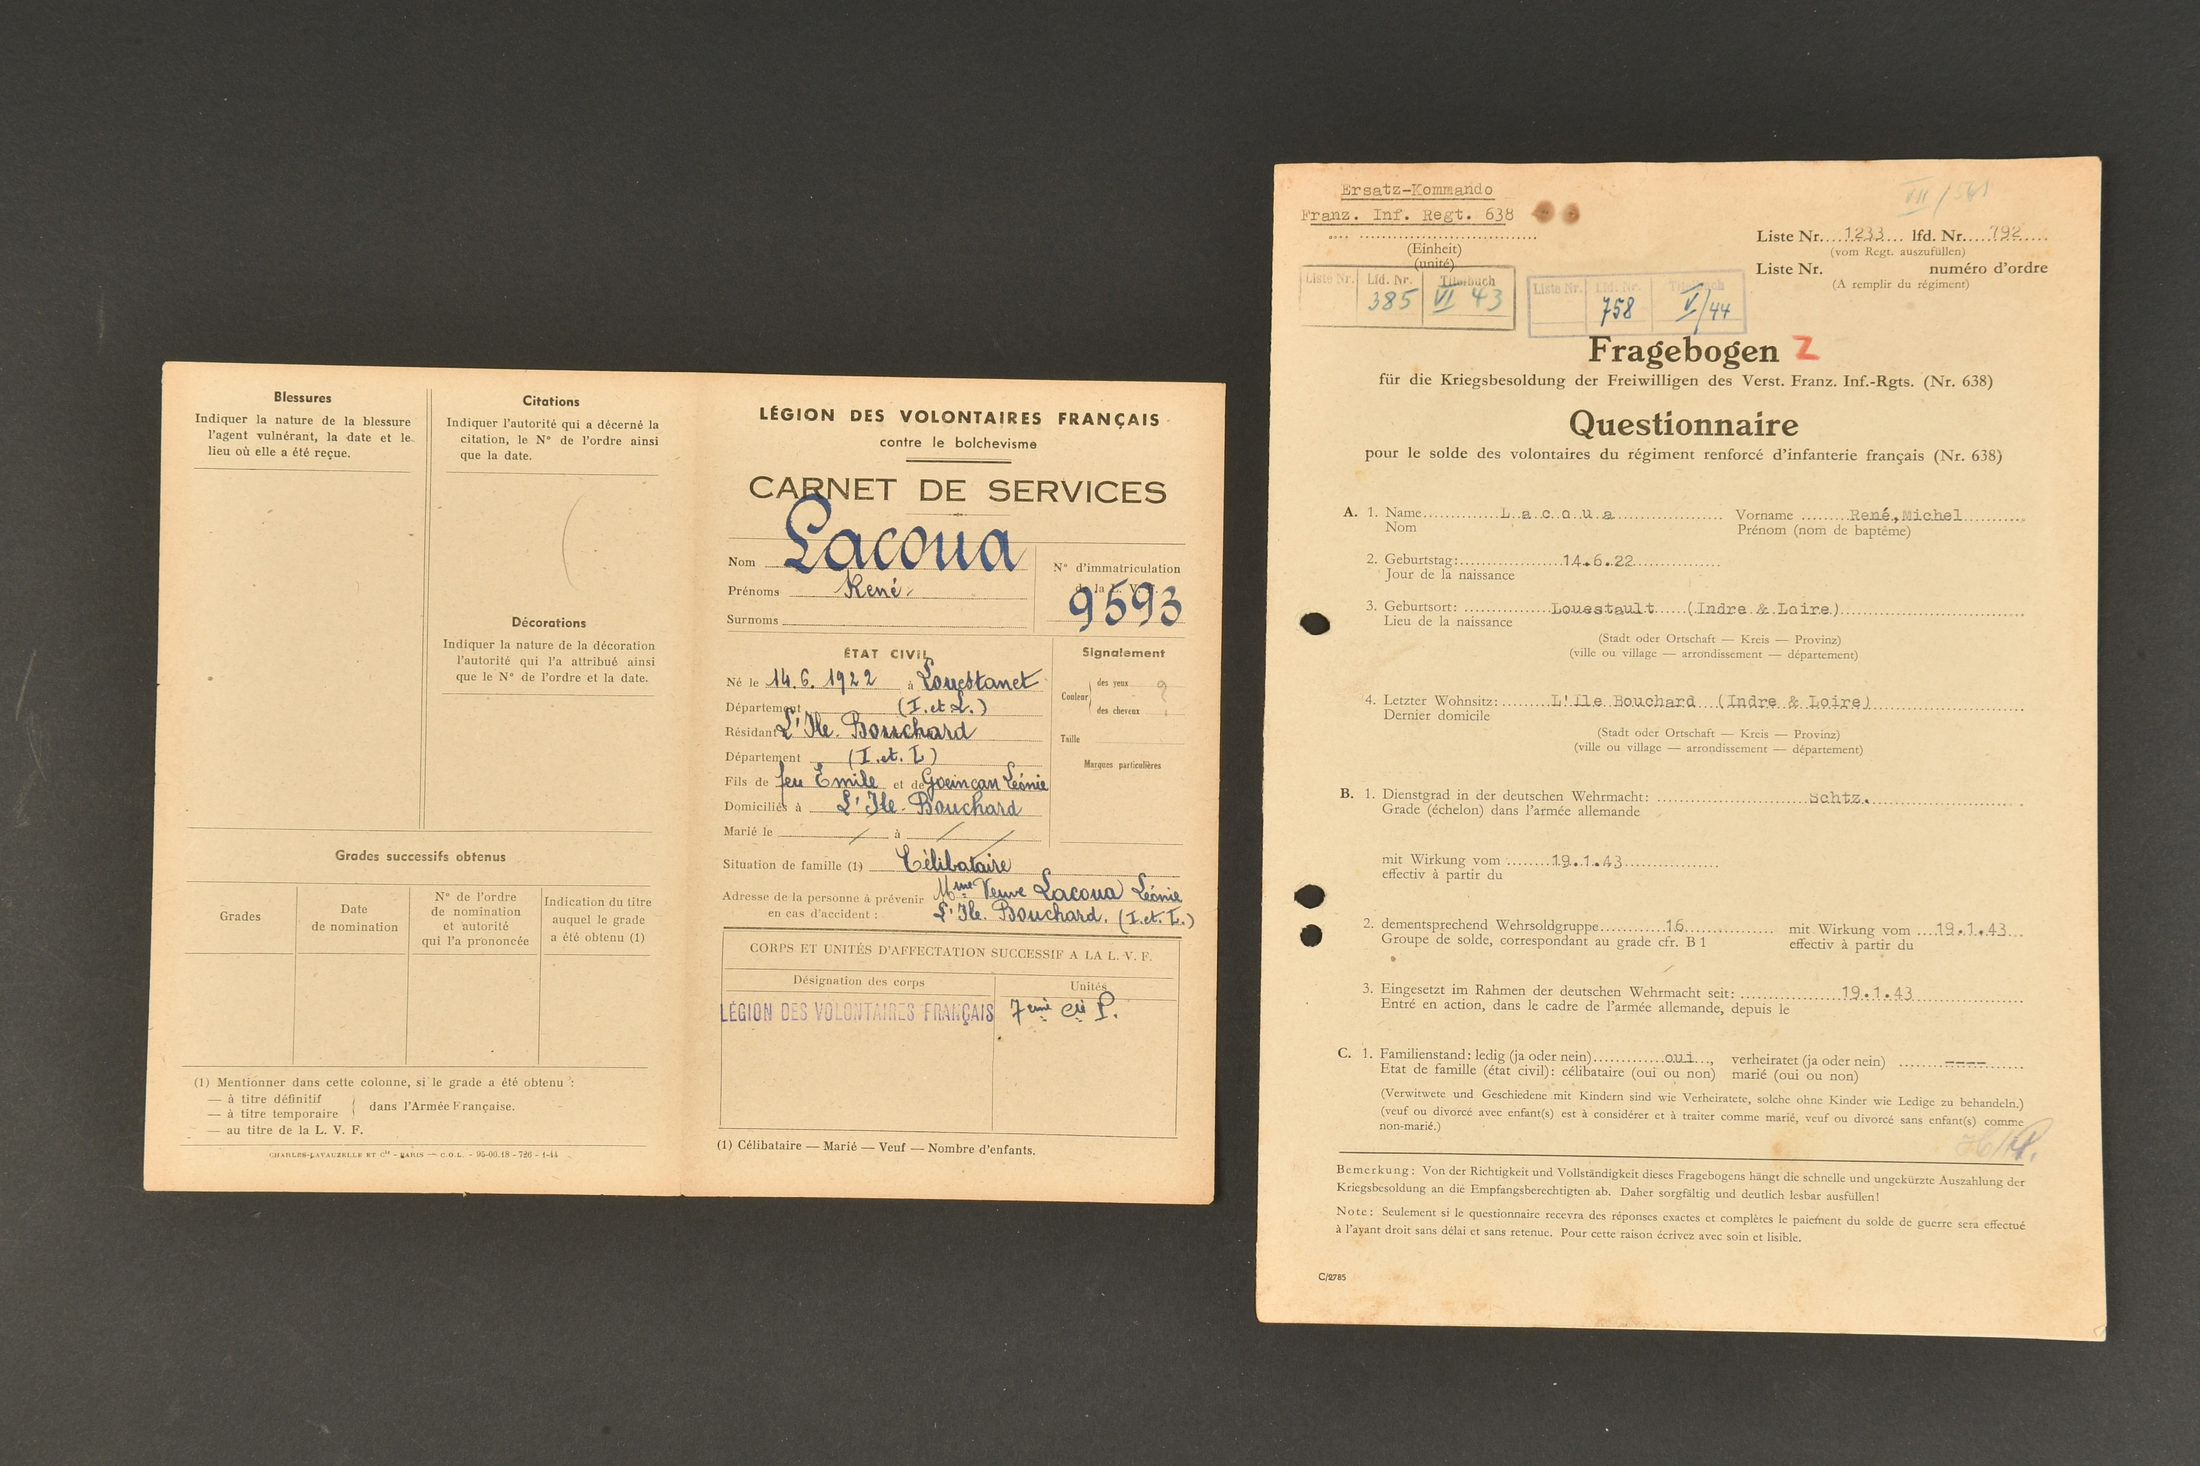 Blessures
Indiquer la nature de la blessure
l'agent vulnérant, la date et le
lieu où elle a été reçue.
Citations
Indiquer l'autorité qui a décerné la
citation, le N° de l'ordre ainsi
que la date.
Décorations
Indiquer la nature de la décoration
l'autorité qui l'a attribué ainsi
que le N° de l'ordre et la date.
Grades successifs obtenus
Grades
Date
de nomination
N° de l'ordre
de nomination
et autorité
qui l'a prononcée
Indication du titre
auquel le grade
a été obtenu (1)
(1) Mentionner dans cette colonne, si le grade a été obtenu :
— à titre définitif
— à titre temporaire
dans l'Armée Française.
— au titre de la L. V. F.
CHARLES-LAVAUZELLE ET Cie - PARIS — C.O.L. - 95-00.18 - 726 - 1-44
LÉGION DES VOLONTAIRES FRANÇAIS
contre le bolchevisme
CARNET DE SERVICES
Nom Lacoua
Prénoms René
Surnoms
N° d'immatriculation
de la L. V. F.
9593
ÉTAT CIVIL
Né le 14.6.1922 à Louestanet
Département (I. et L.)
Résidant L'Ile-Bouchard
Département (I. et. L)
Fils de feu Emile et de Goeincan Léonie
Domiciliés à L'Ile-Bouchard
Marié le / à /
Situation de famille (1) Célibataire
Adresse de la personne à prévenir Mme Veuve Lacoua Léonie
en cas d'accident : L'Ile.Bouchard. (I.et.L.)
Signalement
Couleur
des yeux ?
des cheveux
Taille
Marques particulières
CORPS ET UNITÉS D'AFFECTATION SUCCESSIF A LA L. V. F.
Désignation des corps
Unités
LÉGION DES VOLONTAIRES FRANÇAIS 7eme Cie P.
(1) Célibataire — Marié — Veuf — Nombre d'enfants.
Ersatz-Kommando
Franz. Inf. Regt. 638
(Einheit)
(unité)
VII/561
Liste Nr. 1233 lfd. Nr. 792
(vom Regt. auszufüllen)
Liste Nr. numéro d'ordre
(A remplir du régiment)
Liste Nr. Lfd. Nr. Titelbuch
385 VI 43
Liste Nr. Lfd. Nr. Titelbuch
758 V/44
Fragebogen Z
für die Kriegsbesoldung der Freiwilligen des Verst. Franz. Inf.-Rgts. (Nr. 638)
Questionnaire
pour le solde des volontaires du régiment renforcé d'infanterie français (Nr. 638)
A. 1. Name Lacoua Vorname René,Michel
Nom Prénom (nom de baptême)
2. Geburtstag: 14.6.22
Jour de la naissance
3. Geburtsort: Louestault (Indre & Loire)
Lieu de la naissance
(Stadt oder Ortschaft — Kreis — Provinz)
(ville ou village — arrondissement — département)
4. Letzter Wohnsitz: L'Ile Bouchard (Indre & Loire)
Dernier domicile
(Stadt oder Ortschaft — Kreis — Provinz)
(ville ou village — arrondissement — département)
B. 1. Dienstgrad in der deutschen Wehrmacht: Schtz.
Grade (échelon) dans l'armée allemande
mit Wirkung vom 19.1.43
effectiv à partir du
2. dementsprechend Wehrsoldgruppe 16 mit Wirkung vom 19.1.43
Groupe de solde, correspondant au grade cfr. B 1 effectiv à partir du
3. Eingesetzt im Rahmen der deutschen Wehrmacht seit: 19.1.43
Entré en action, dans le cadre de l'armée allemande, depuis le
C. 1. Familienstand: ledig (ja oder nein) oui , verheiratet (ja oder nein) ----
Etat de famille (état civil): célibataire (oui ou non) marié (oui ou non)
(Verwitwete und Geschiedene mit Kindern sind wie Verheiratete, solche ohne Kinder wie Ledige zu behandeln.)
(veuf ou divorcé avec enfant(s) est à considérer et à traiter comme marié, veuf ou divorcé sans enfant(s) comme
non-marié.)
Bemerkung: Von der Richtigkeit und Vollständigkeit dieses Fragebogens hängt die schnelle und ungekürzte Auszahlung der
Kriegsbesoldung an die Empfangsberechtigten ab. Daher sorgfältig und deutlich lesbar ausfüllen!
Note: Seulement si le questionnaire recevra des réponses exactes et complètes le paiement du solde de guerre sera effectué
à l'ayant droit sans délai et sans retenue. Pour cette raison écrivez avec soin et lisible.
C/2785